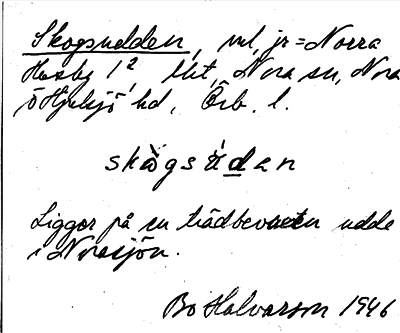 Skogsudden, utl, jr = Norra
Husby 1², Nora sn, Nora
o Hjulsjö hd, Örb. l.
skògsúdan
Ligger på en trädbevuxen udde
i Norasjön.
Bo Halvarson 1946